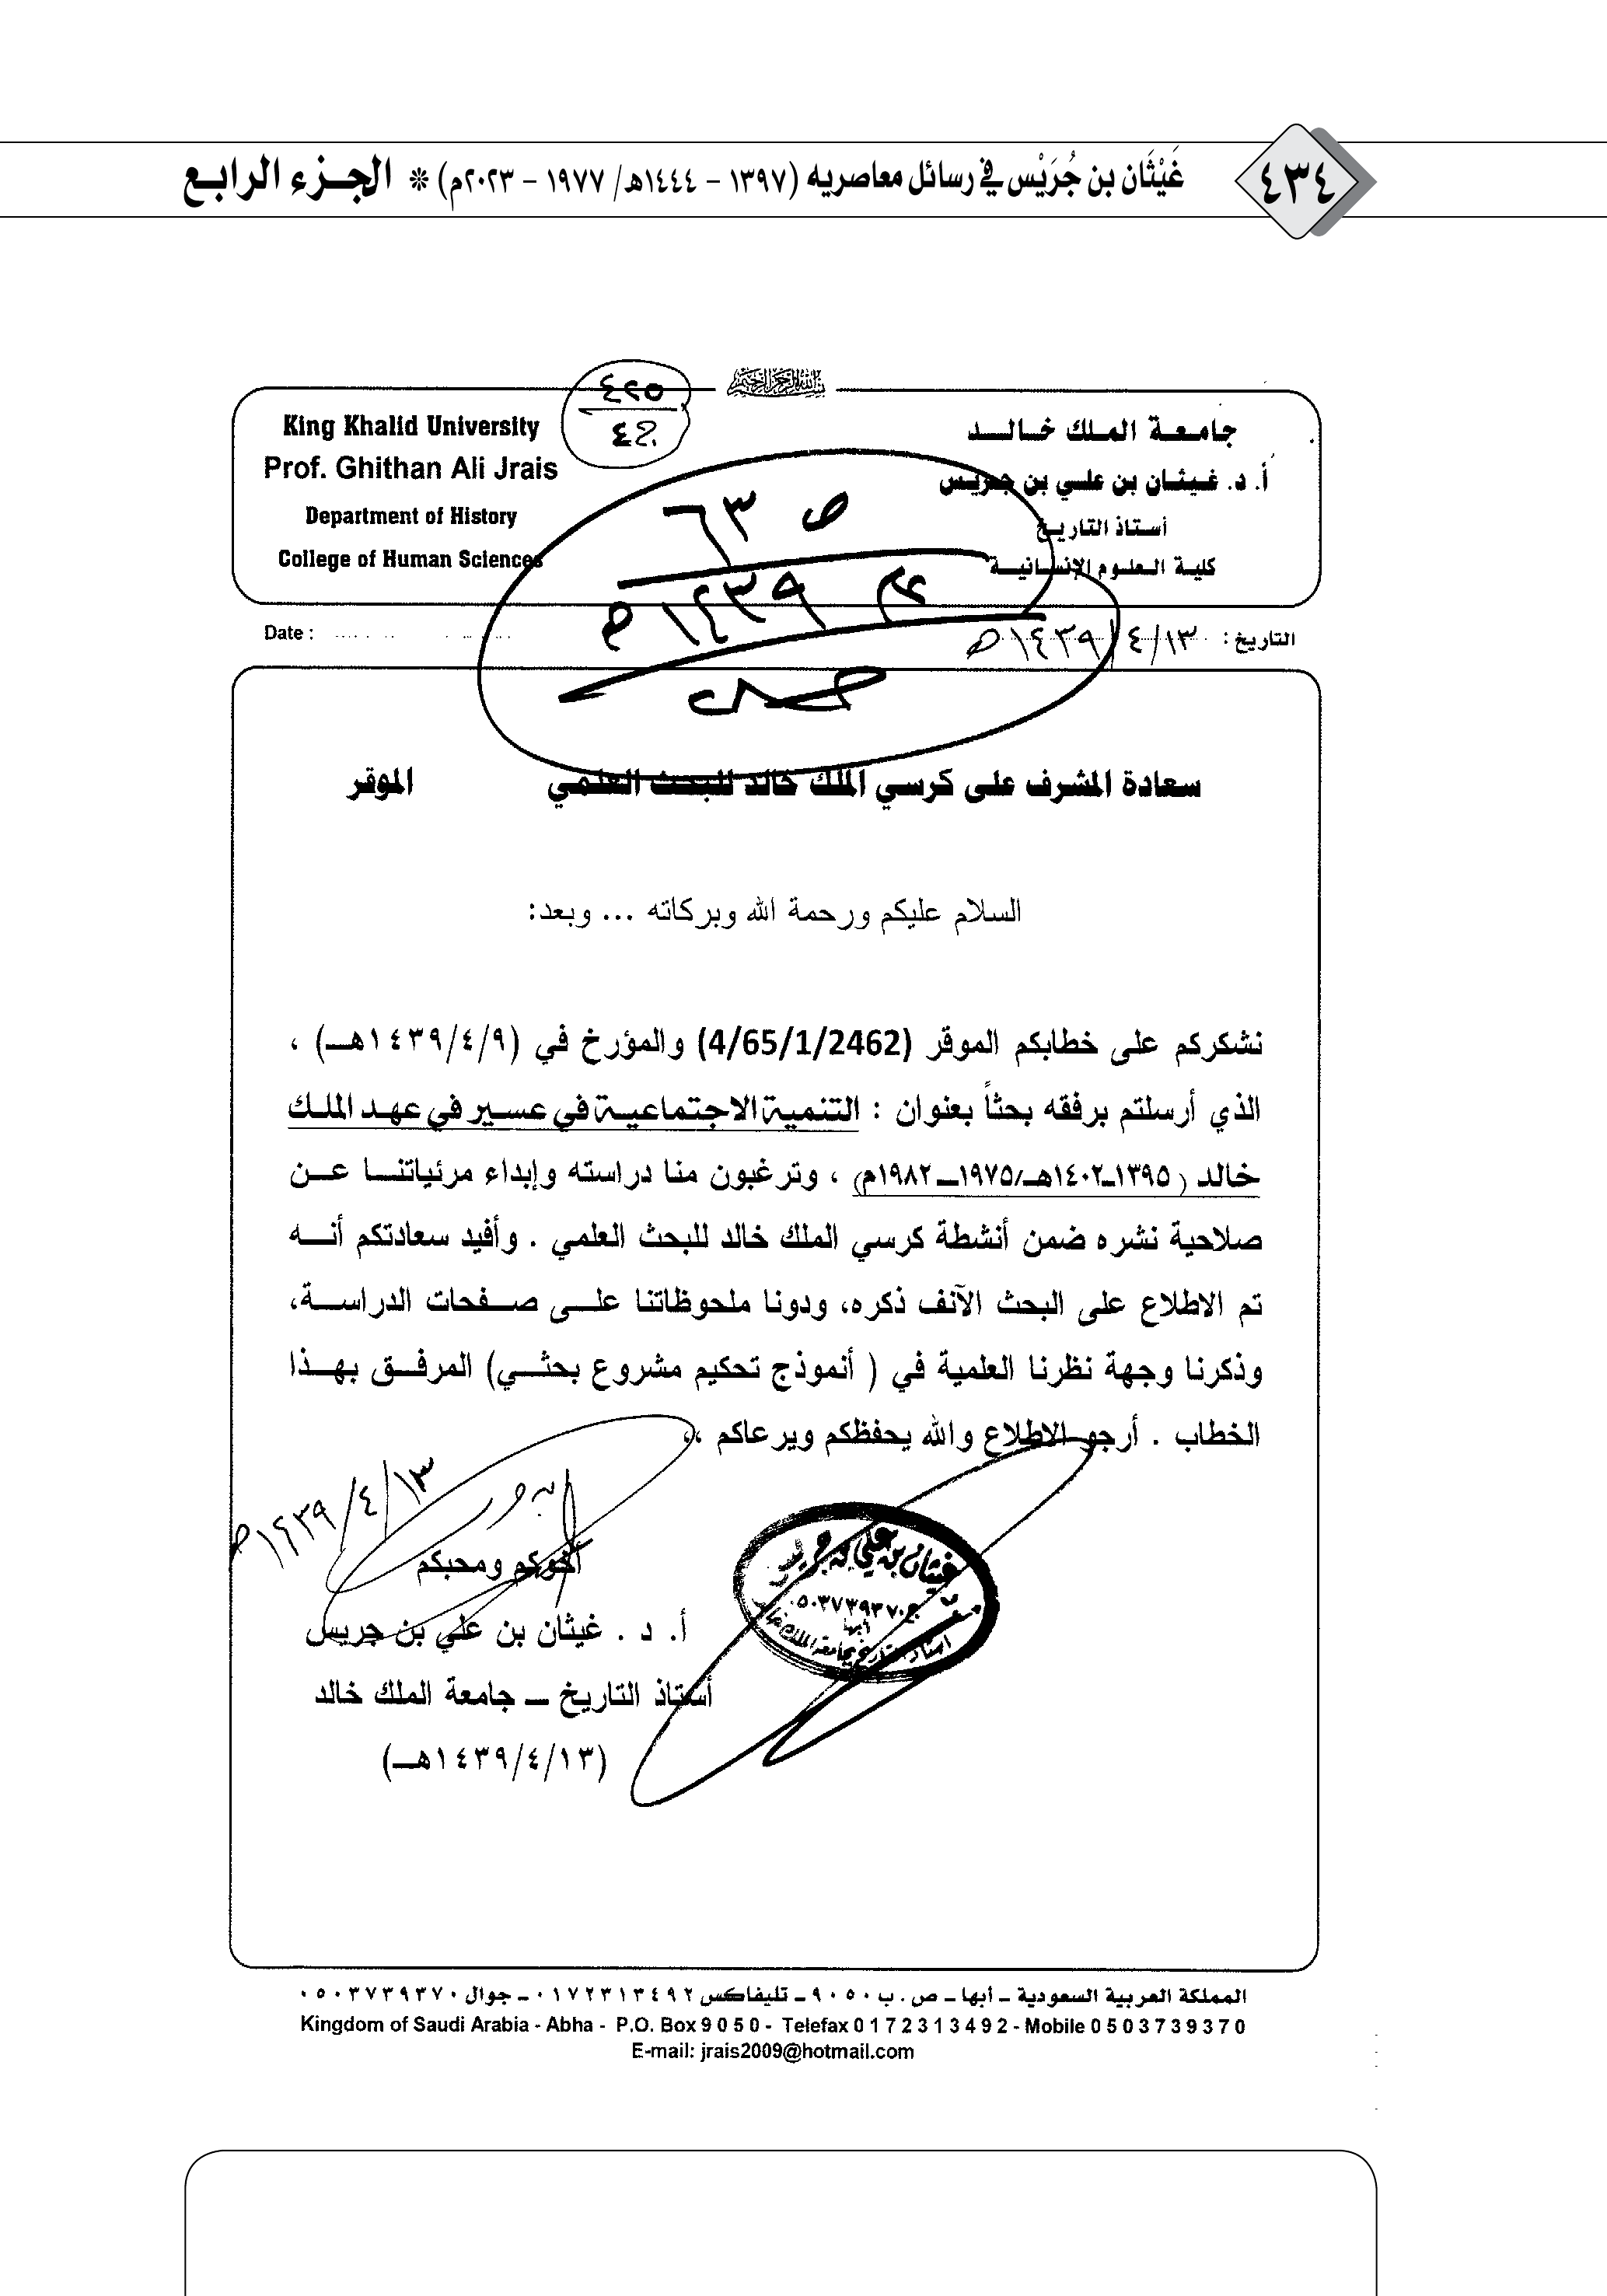 ٤٣٤
غَيْثَان بن جُرَيْس في رسائل معاصريه (١٣٩٧ – ١٤٤٤هـ/ ١٩٧٧ – ٢٠٢٣م) * الجزء الرابع
بسم الله الرحمن الرحيم
جامعة الملك خالد
أ. د. غيثان بن علي بن جريس
أستاذ التاريخ
كلية العلوم الإنسانية
King Khalid University
Prof. Ghithan Ali Jrais
Department of History
College of Human Sciences
٤٢٥
ص ٦٣
١٤٣٩هـ
التاريخ: ١٤٣٩/٤/١٣هـ
Date :
سعادة المشرف على كرسي الملك خالد للبحث العلمي الموقر
السلام عليكم ورحمة الله وبركاته ... وبعد:
نشكركم على خطابكم الموقر (4/65/1/2462) والمؤرخ في (١٤٣٩/٤/٩هـ) ،
الذي أرسلتم برفقه بحثاً بعنوان : التنمية الاجتماعية في عسير في عهد الملك
خالد (١٣٩٥ـ١٤٠٢هـ/١٩٧٥ـ١٩٨٢م) ، وترغبون منا دراسته وإبداء مرئياتنا عن
صلاحية نشره ضمن أنشطة كرسي الملك خالد للبحث العلمي . وأفيد سعادتكم أنه
تم الاطلاع على البحث الآنف ذكره، ودونا ملحوظاتنا على صفحات الدراسة،
وذكرنا وجهة نظرنا العلمية في ( أنموذج تحكيم مشروع بحثي) المرفق بهذا
الخطاب . أرجو الاطلاع والله يحفظكم ويرعاكم ،،
١٤٣٩/٤/١٣هـ
أخوكم ومحبكم
أ. د . غيثان بن علي بن جريس
أستاذ التاريخ ـ جامعة الملك خالد
(١٤٣٩/٤/١٣هـ)
غيثان بن علي بن جريس
٠٥٠٣٧٣٩٣٧٠
أبها
أستاذ التاريخ بجامعة الملك خالد
المملكة العربية السعودية ـ أبها ـ ص . ب ٩٠٥٠ ـ تليفاكس ٠١٧٢٣١٣٤٩٢ ـ جوال ٠٥٠٣٧٣٩٣٧٠
Kingdom of Saudi Arabia - Abha - P.O. Box 9 0 5 0 - Telefax 0 1 7 2 3 1 3 4 9 2 - Mobile 0 5 0 3 7 3 9 3 7 0
E-mail: jrais2009@hotmail.com